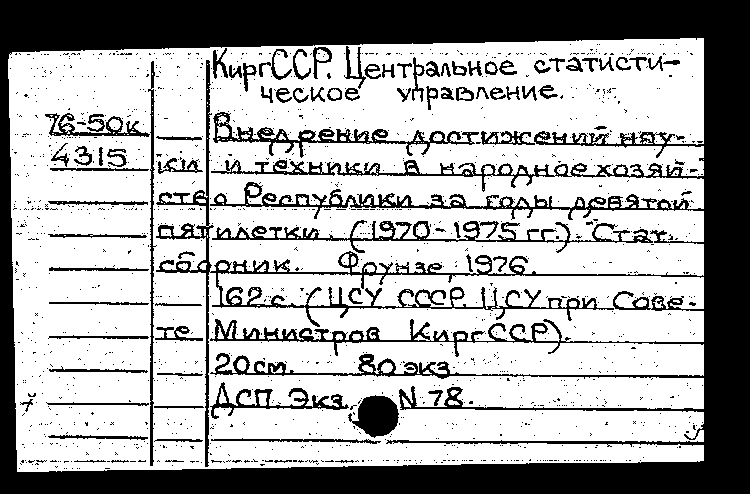 КиргССР. Центральное статисти-
ческое управление.
76-50к
4315
Внедрение достижений нау-
ки и техники в народное хозяй-
ство Республики за годы девятой
пятилетки. (1970-1975 гг.). Стат.
сборник. Фрунзе, 1976.
162 с. (ЦСУ СССР. ЦСУ при Сове-
те Министров КиргССР).
20 см. 80 экз.
ДСП. Экз. N 78.